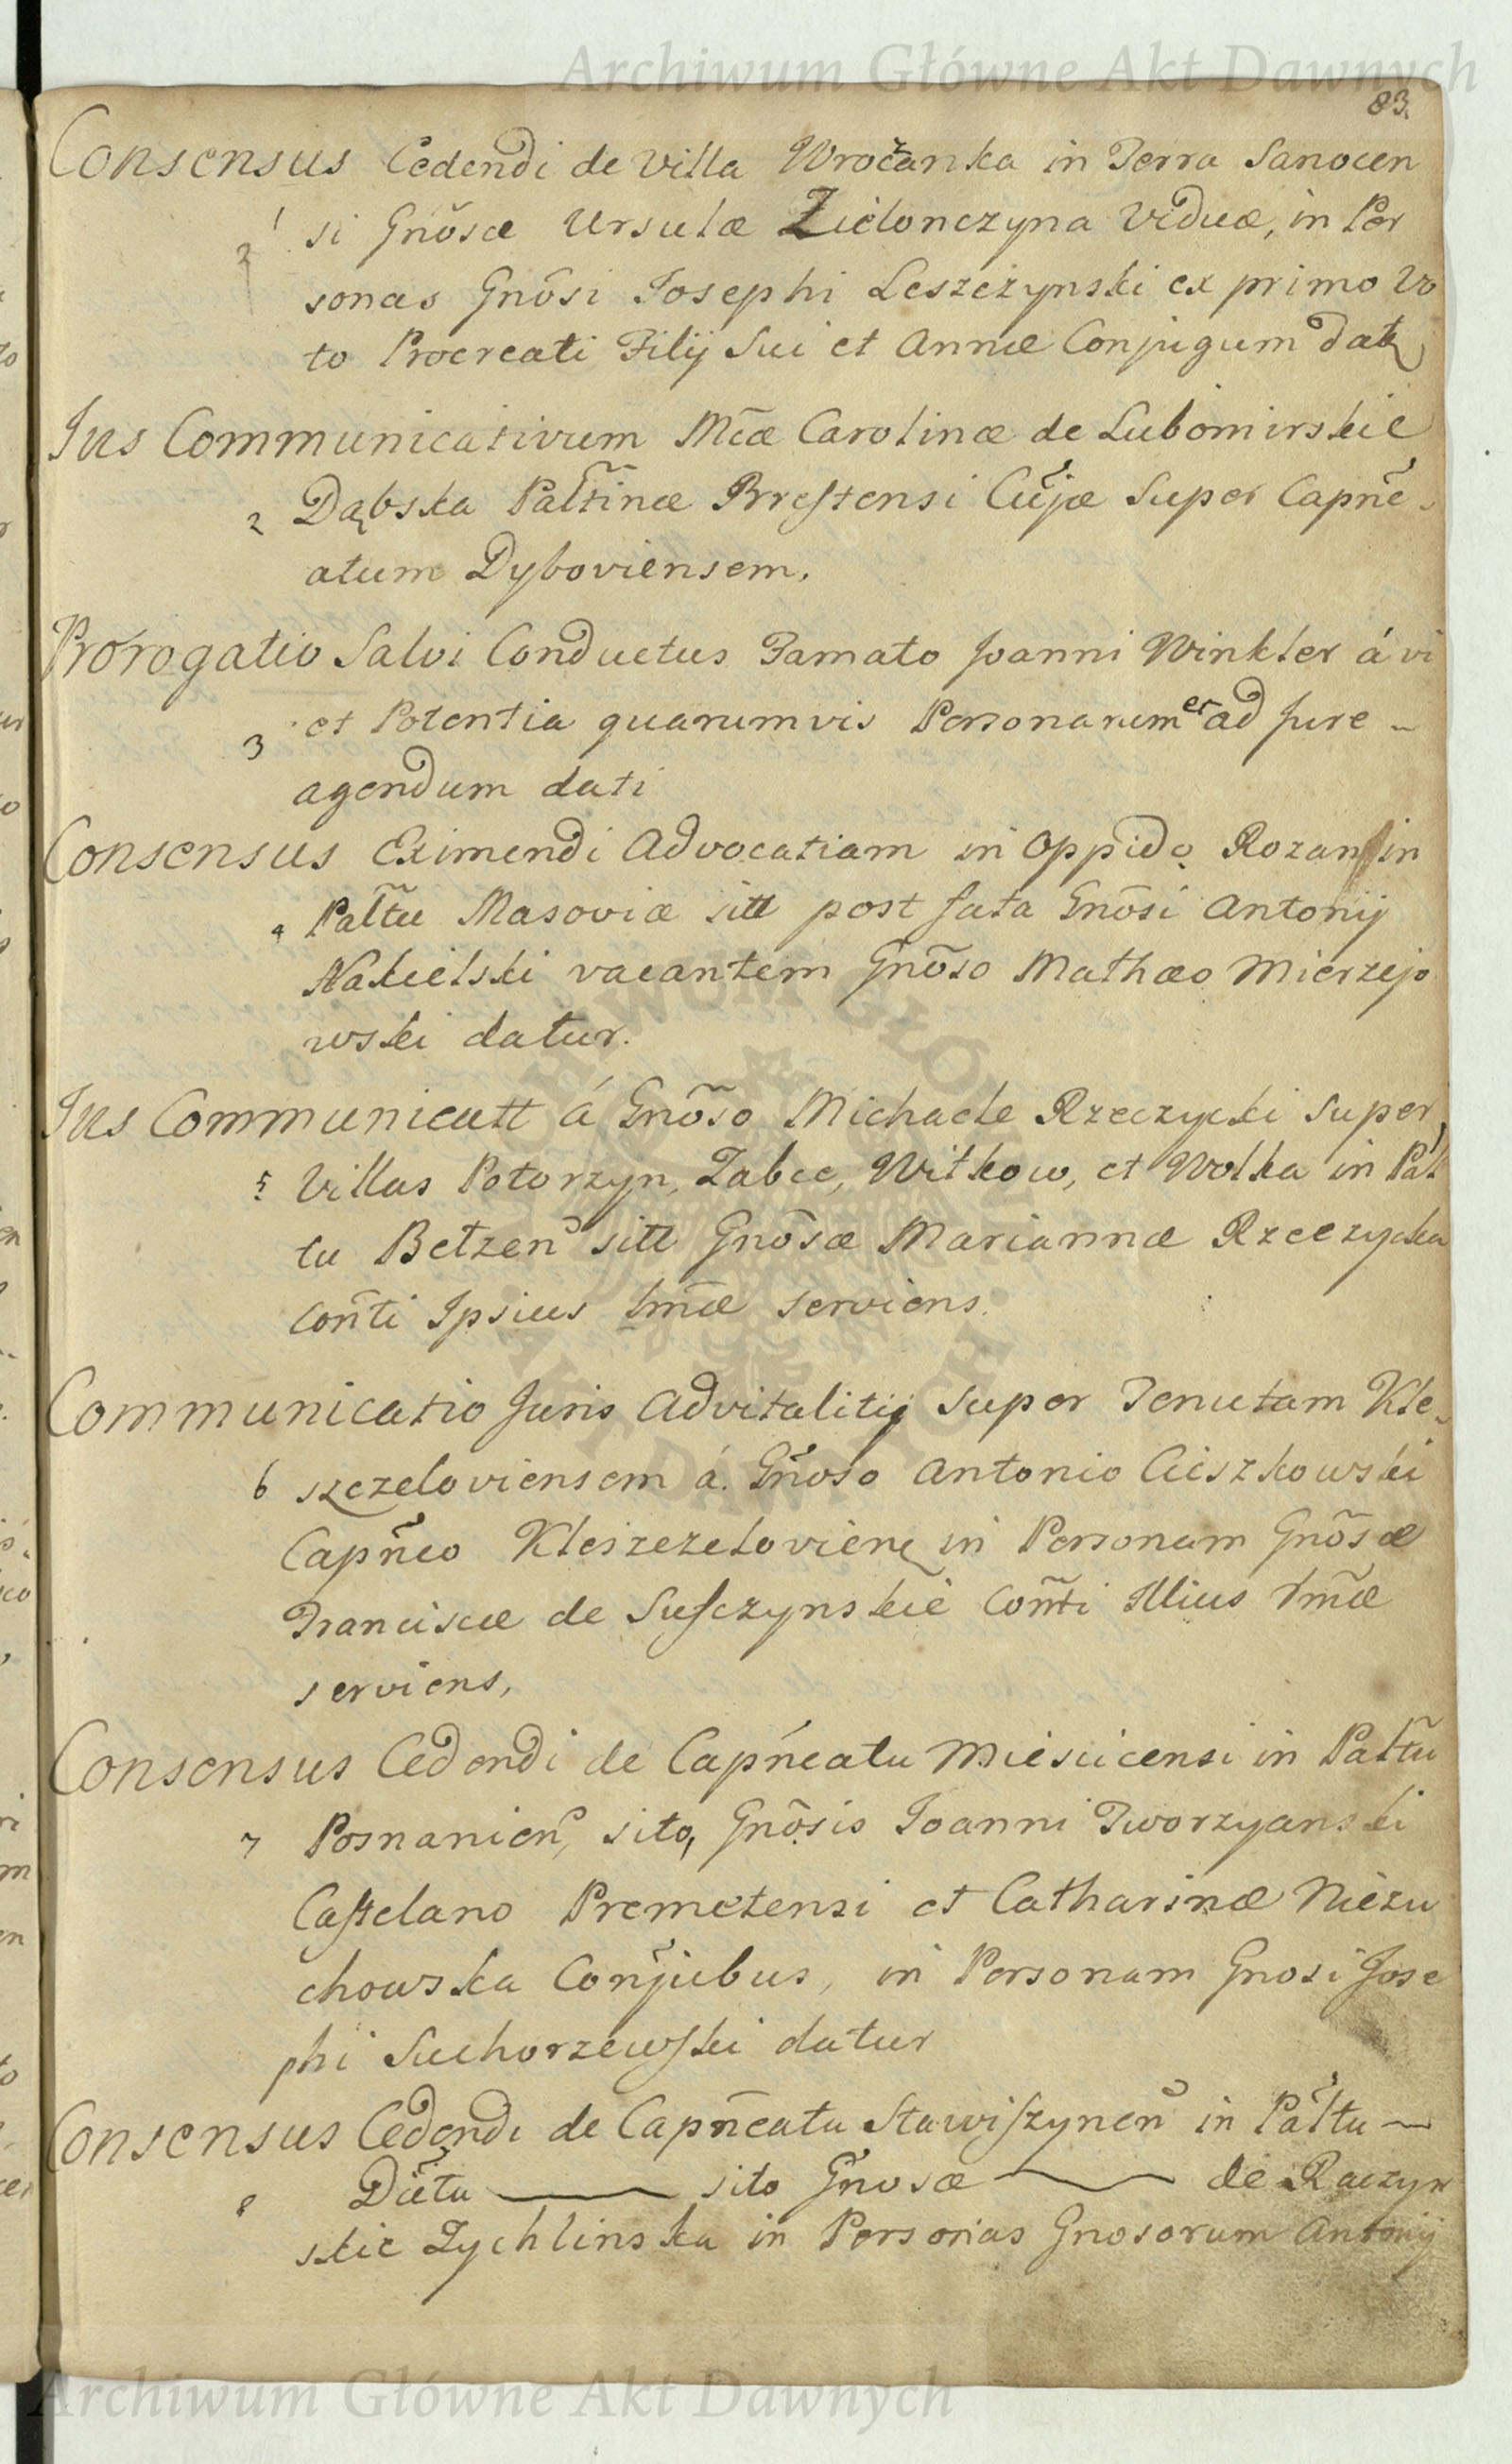 Archiwum Główne Akt Dawnych
83.
Consensus Cedendi de Villa Wroćanka in Terra Sanocen
1 si Gnõsæ Ursulæ Zielonczyna Viduæ, in Per
2
sonas Gnõsi Josephi Leszczynski ex primo Vo
to Procreati Filij Sui et Annæ Conjugum dat
Jus Communicativum Mcæ Carolinæ de Lubomirskie
2 Dąbska Paltinæ Brestensi Cujæ Super Capñe
atum Dyboviensem.
Prorogatio Salvi Conductus Famato Joanni Winkler á vi
3 et Potentia quarumvis Personarum et ad jure
agendum dati
Consensus Eximendi Advocatiam in Oppido Rozan in
4 Paltũ Masoviæ sitt post fata Gnõsi Antonij
Nakielski vacantem Gnõso Mathæo Mierzejo
wski datur.
Jus Communicatt á Gnõso Michaele Rzeczycki Super
5 Villas Potorzyn, Zabce, Witkow, et Wolka in Pal
tu Betzen sitt Gnõsæ Mariannæ Rzeczycka
Conti Ipsius Imæ serviens.
Communicatio Juris Advitalitij Super Tenutam Kle
6 szczeloviensem á Gñoso Antonio Ciszkowski
Capñeo Kleszczelovien in Personam Gnõsæ
Franciscæ de Susczynskie Comti Illius Imæ
serviens,
Consensus Cedendi de Capñeatu Miescicensi in Paltũ
7 Posnanien, sito, Gnõsis Joanni Tworzyanski
Castelano Premetensi et Catharinæ Niezu
chowska Conjubus, in Personam Gnosi Jose
phi Suchorzewski datur
Consensus Cedendi de Capñeatu Stawiszynen in Paltu
8 Dictu sito Gnosæ de Raczyn
skie Zychlinska in Personas Gnosorum Antonij
Archiwum Główne Akt Dawnych